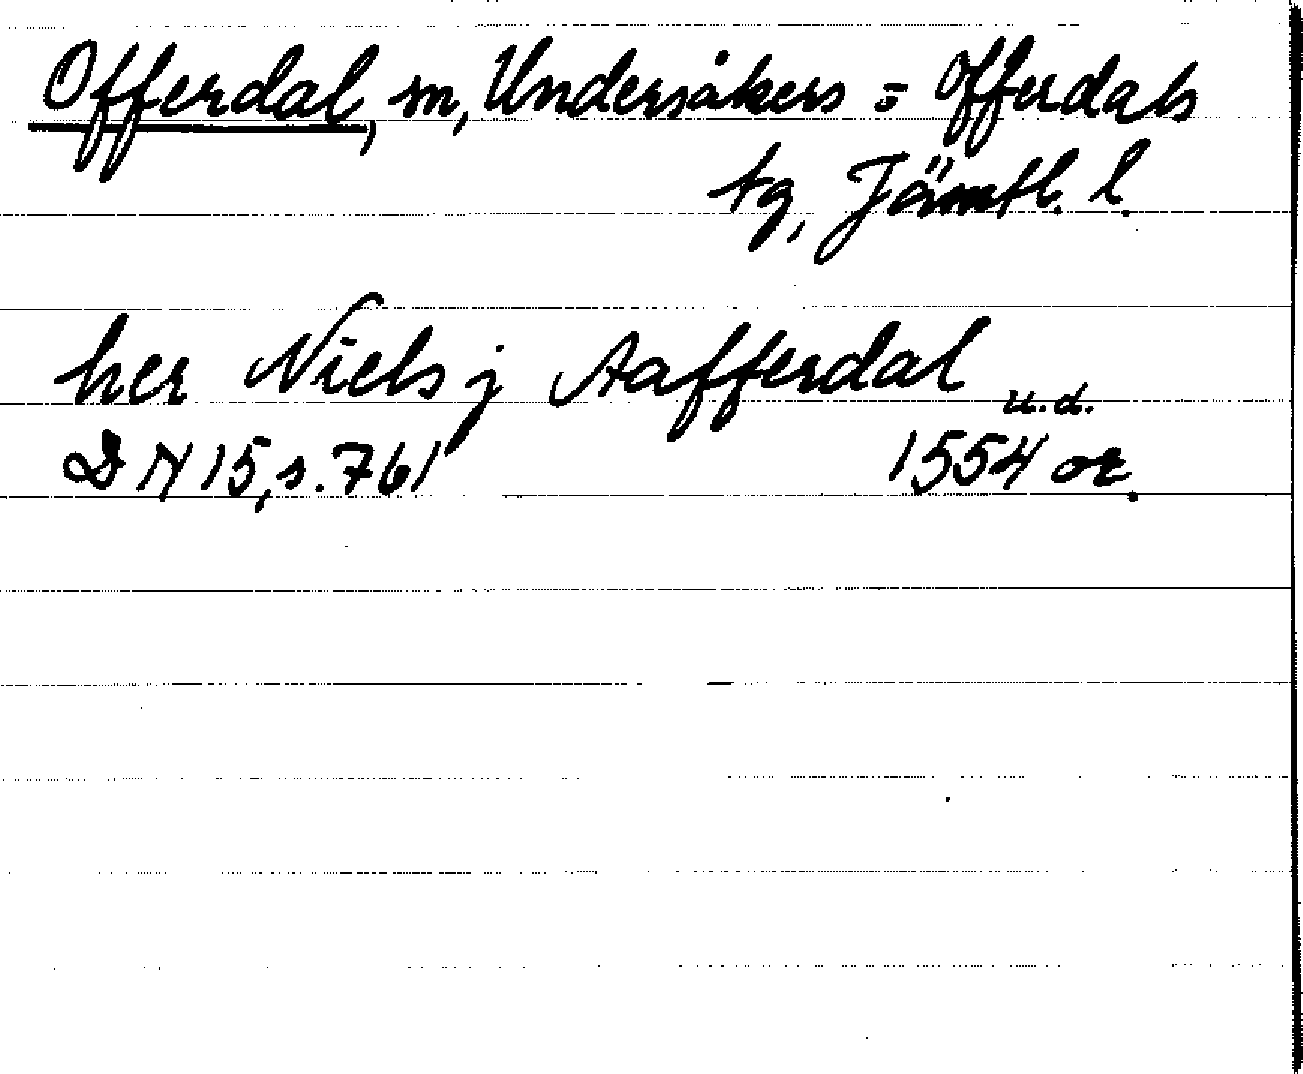 Offerdal, sn, Undersåkers = Offerdals
tg, Jämtl. l.
her Niels j Aafferdal
u.d.
DN 15, s. 761 1554 or.